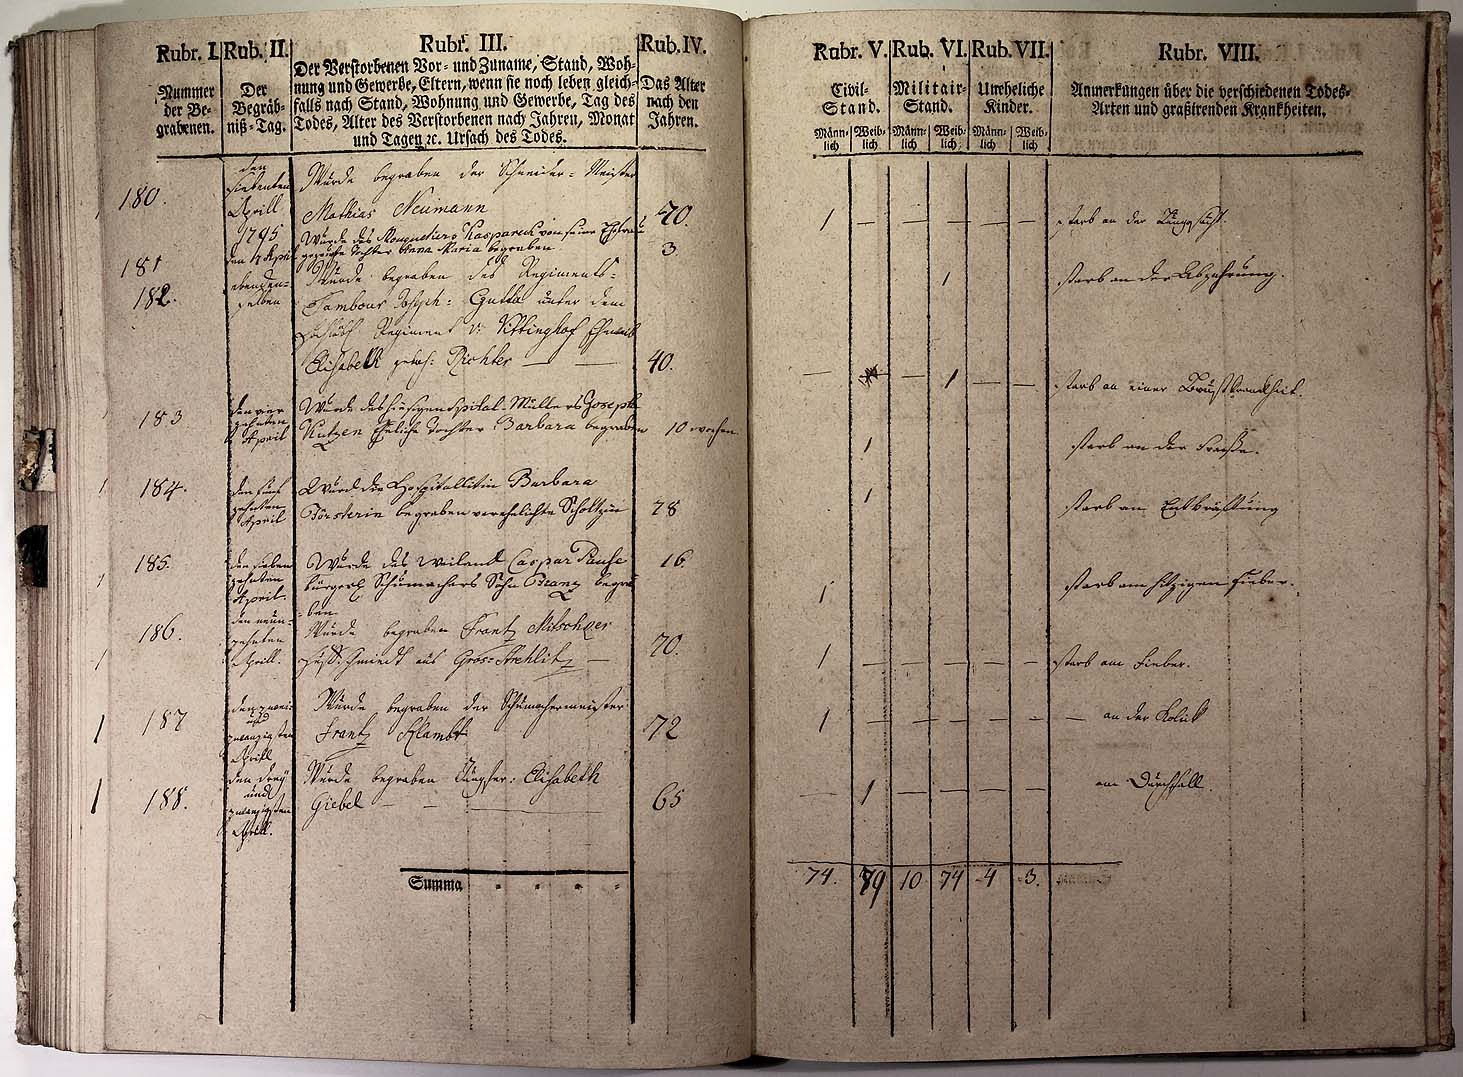 Rubr. I.
Nummer
der Be-
grabenen.
Rub. II.
Der
Begräb-
niß-Tag.
Rubr. III.
Der Verstorbenen Vor- und Zuname, Stand, Woh-
nung und Gewerbe, Eltern, wenn sie noch leben gleich-
falls nach Stand, Wohnung und Gewerbe, Tag des
Todes, Alter des Verstorbenen nach Jahren, Monat
und Tagen ꝛc. Ursach des Todes.
Rub. IV.
Das Alter
nach den
Jahren.
Rubr. V.
Civil-
Stand.
Männ-
lich
Weib-
lich
Rub. VI.
Militair-
Stand.
Männ-
lich
Weib-
lich
Rub. VII.
Uneheliche
Kinder.
Männ-
lich
Weib-
lich
Rubr. VIII.
Anmerkungen über die verschiedenen Todes-
Arten und graßirenden Krankheiten.
180.
den
siebenten
Aprill
1795
Wurde begraben der Schneider-Meister
Mathias Neumann
70.
1 — — — — —
starb an der
181
den April
Wurde des Mousquetiers Kaspareck von seiner Ehefrau
gezeugte Tochter Anna Maria begraben
3.
1
starb an der Abzehrung.
182.
den
selben
Wurde begraben des Regiments-
Tambour Joseph: Gutta unter dem
Regiment v: Vittinghof Eheweib
Elisabeth geboh: Richter — —
40.
— — 1 — —
starb an einer Brustkrankheit.
183
den vier
zehnten
April
Wurde des hiesigen Spital-Müllers Joseph
Kutzen Eheliche Tochter Barbara begraben
10 wochen
1
starb an der
184.
den fünf
zehnten
April
Wurd die Hospitallitin Barbara
Försterin begraben verehelichte Scholtzin
78
1
starb an Entkräftung
185.
den sieben
zehnten
April.
Wurde des weiland Caspar Pause
bürgerl Schumachers Sohn Frantz begra
ben
16
1
starb am hitzigen Fieber.
186.
den neun-
zehnten
Aprill.
Wurde begraben Frantz Mitschker
aus Gros-Strehlitz —
70.
1 — — — — —
starb am Fieber.
187
den zwei
und
zwanzigsten
Aprill
Wurde begraben der Schumachermeister
Frantz Klambt
72
1 — — — — —
— an der Kolick
188.
den drey
und
zwanzigsten
Aprill.
Wurde begraben Jungfer: Elisabeth
Giebel — — —
65
— 1 — — — —
am Durchfall.
Summa
74. 79 10 74 4 3.